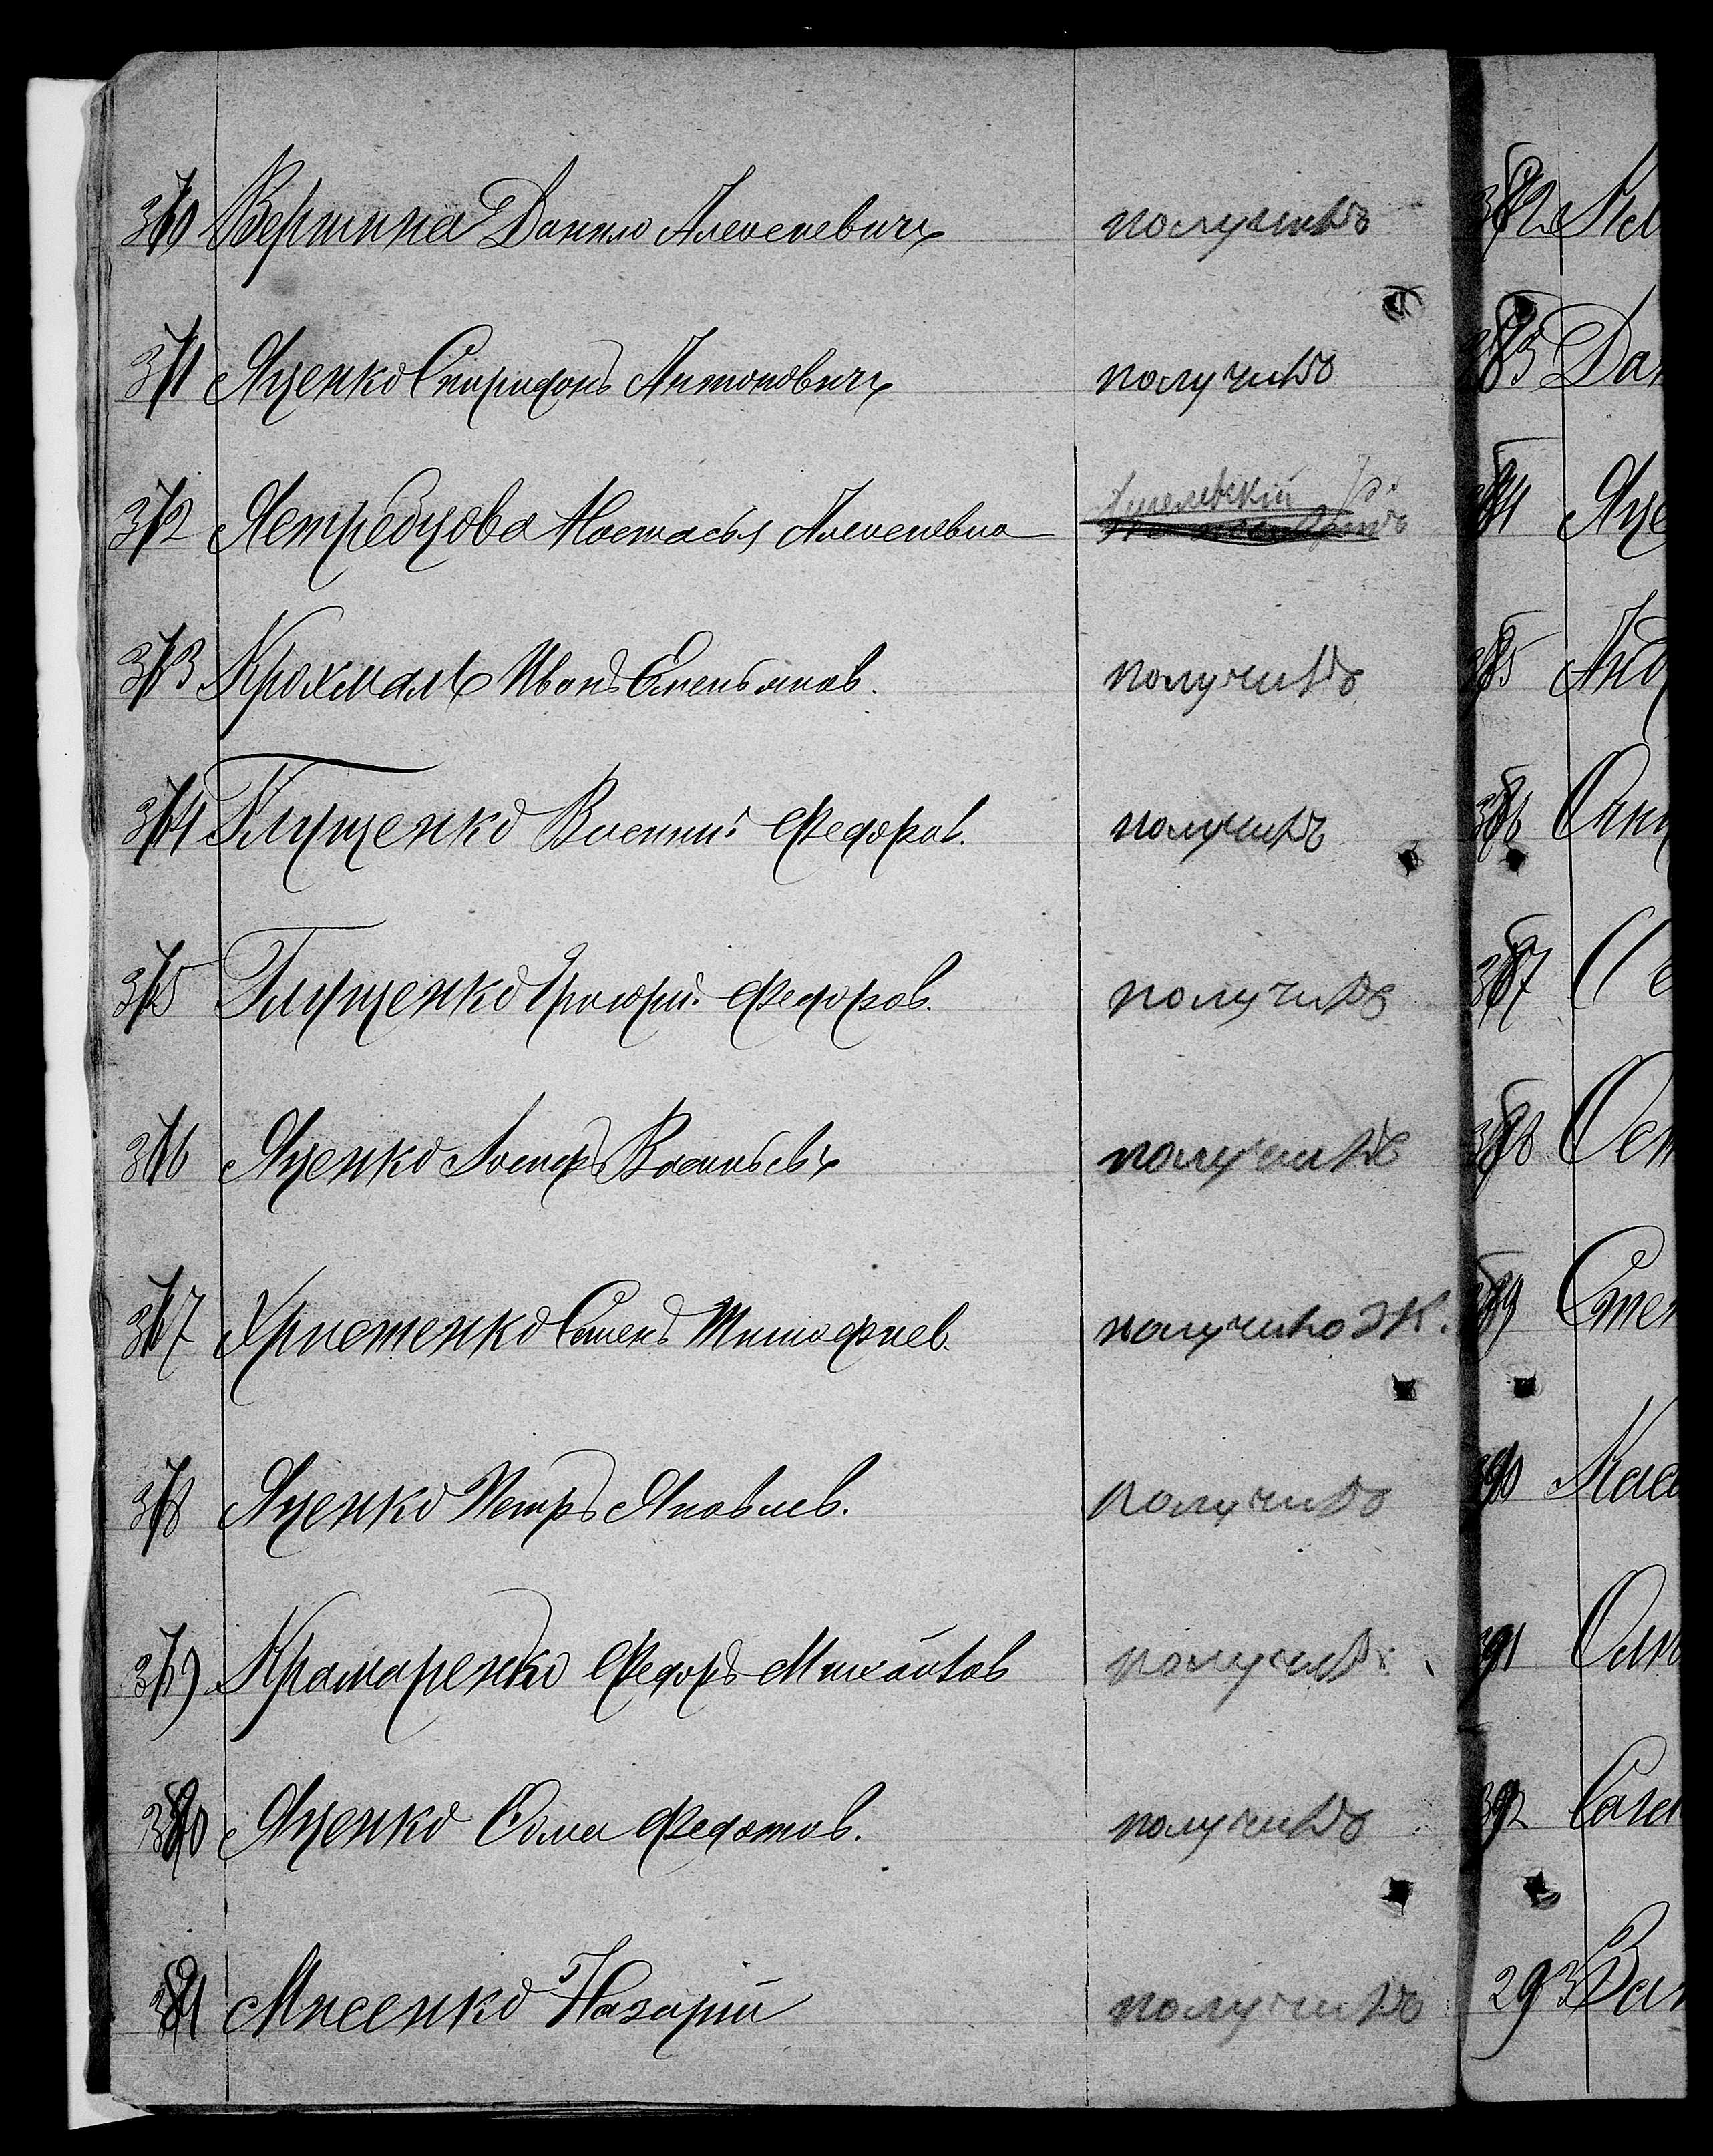 370 Вертина Данило Алексеевичъ получилъ
371 Яценко Спиридонъ Антоновичъ получилъ
372 Ястребцова Настасья Алексеевна
373 Крохмаль Иванъ Емельянов. получилъ
374 Глущенко Василий Федоров. получилъ
375 Глущенко Григорій Федоров. получилъ
376 Яценко Васильевъ получилъ
377 Христенко Семенъ Тимофиев. получило Ж.
378 Яценко Петръ Яковлев. получилъ
379 Крамаренко Федоръ Михайлов получилъ
380 Яценко Сома Федотов. получилъ
381 Мисенко Назарій получилъ
382
383 Дан
384 Яце
385 Анд
386
387
388 Ост
389 Степ
390
391
392
293